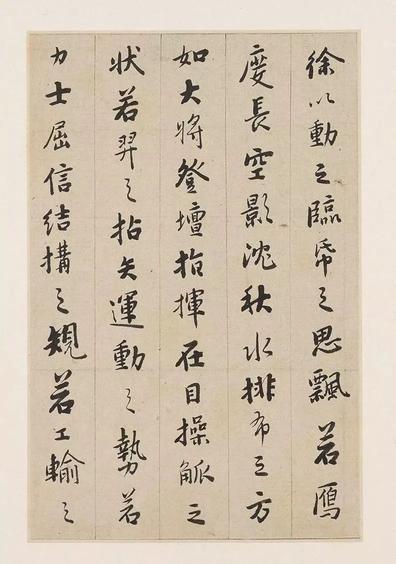 徐以動之臨帋之思飄若鴈
度長空影沈秋水排布之方
如大將登壇指揮在目操觚之
状若羿之拈矢運動之勢若
力士屈信結搆之規若工輸之